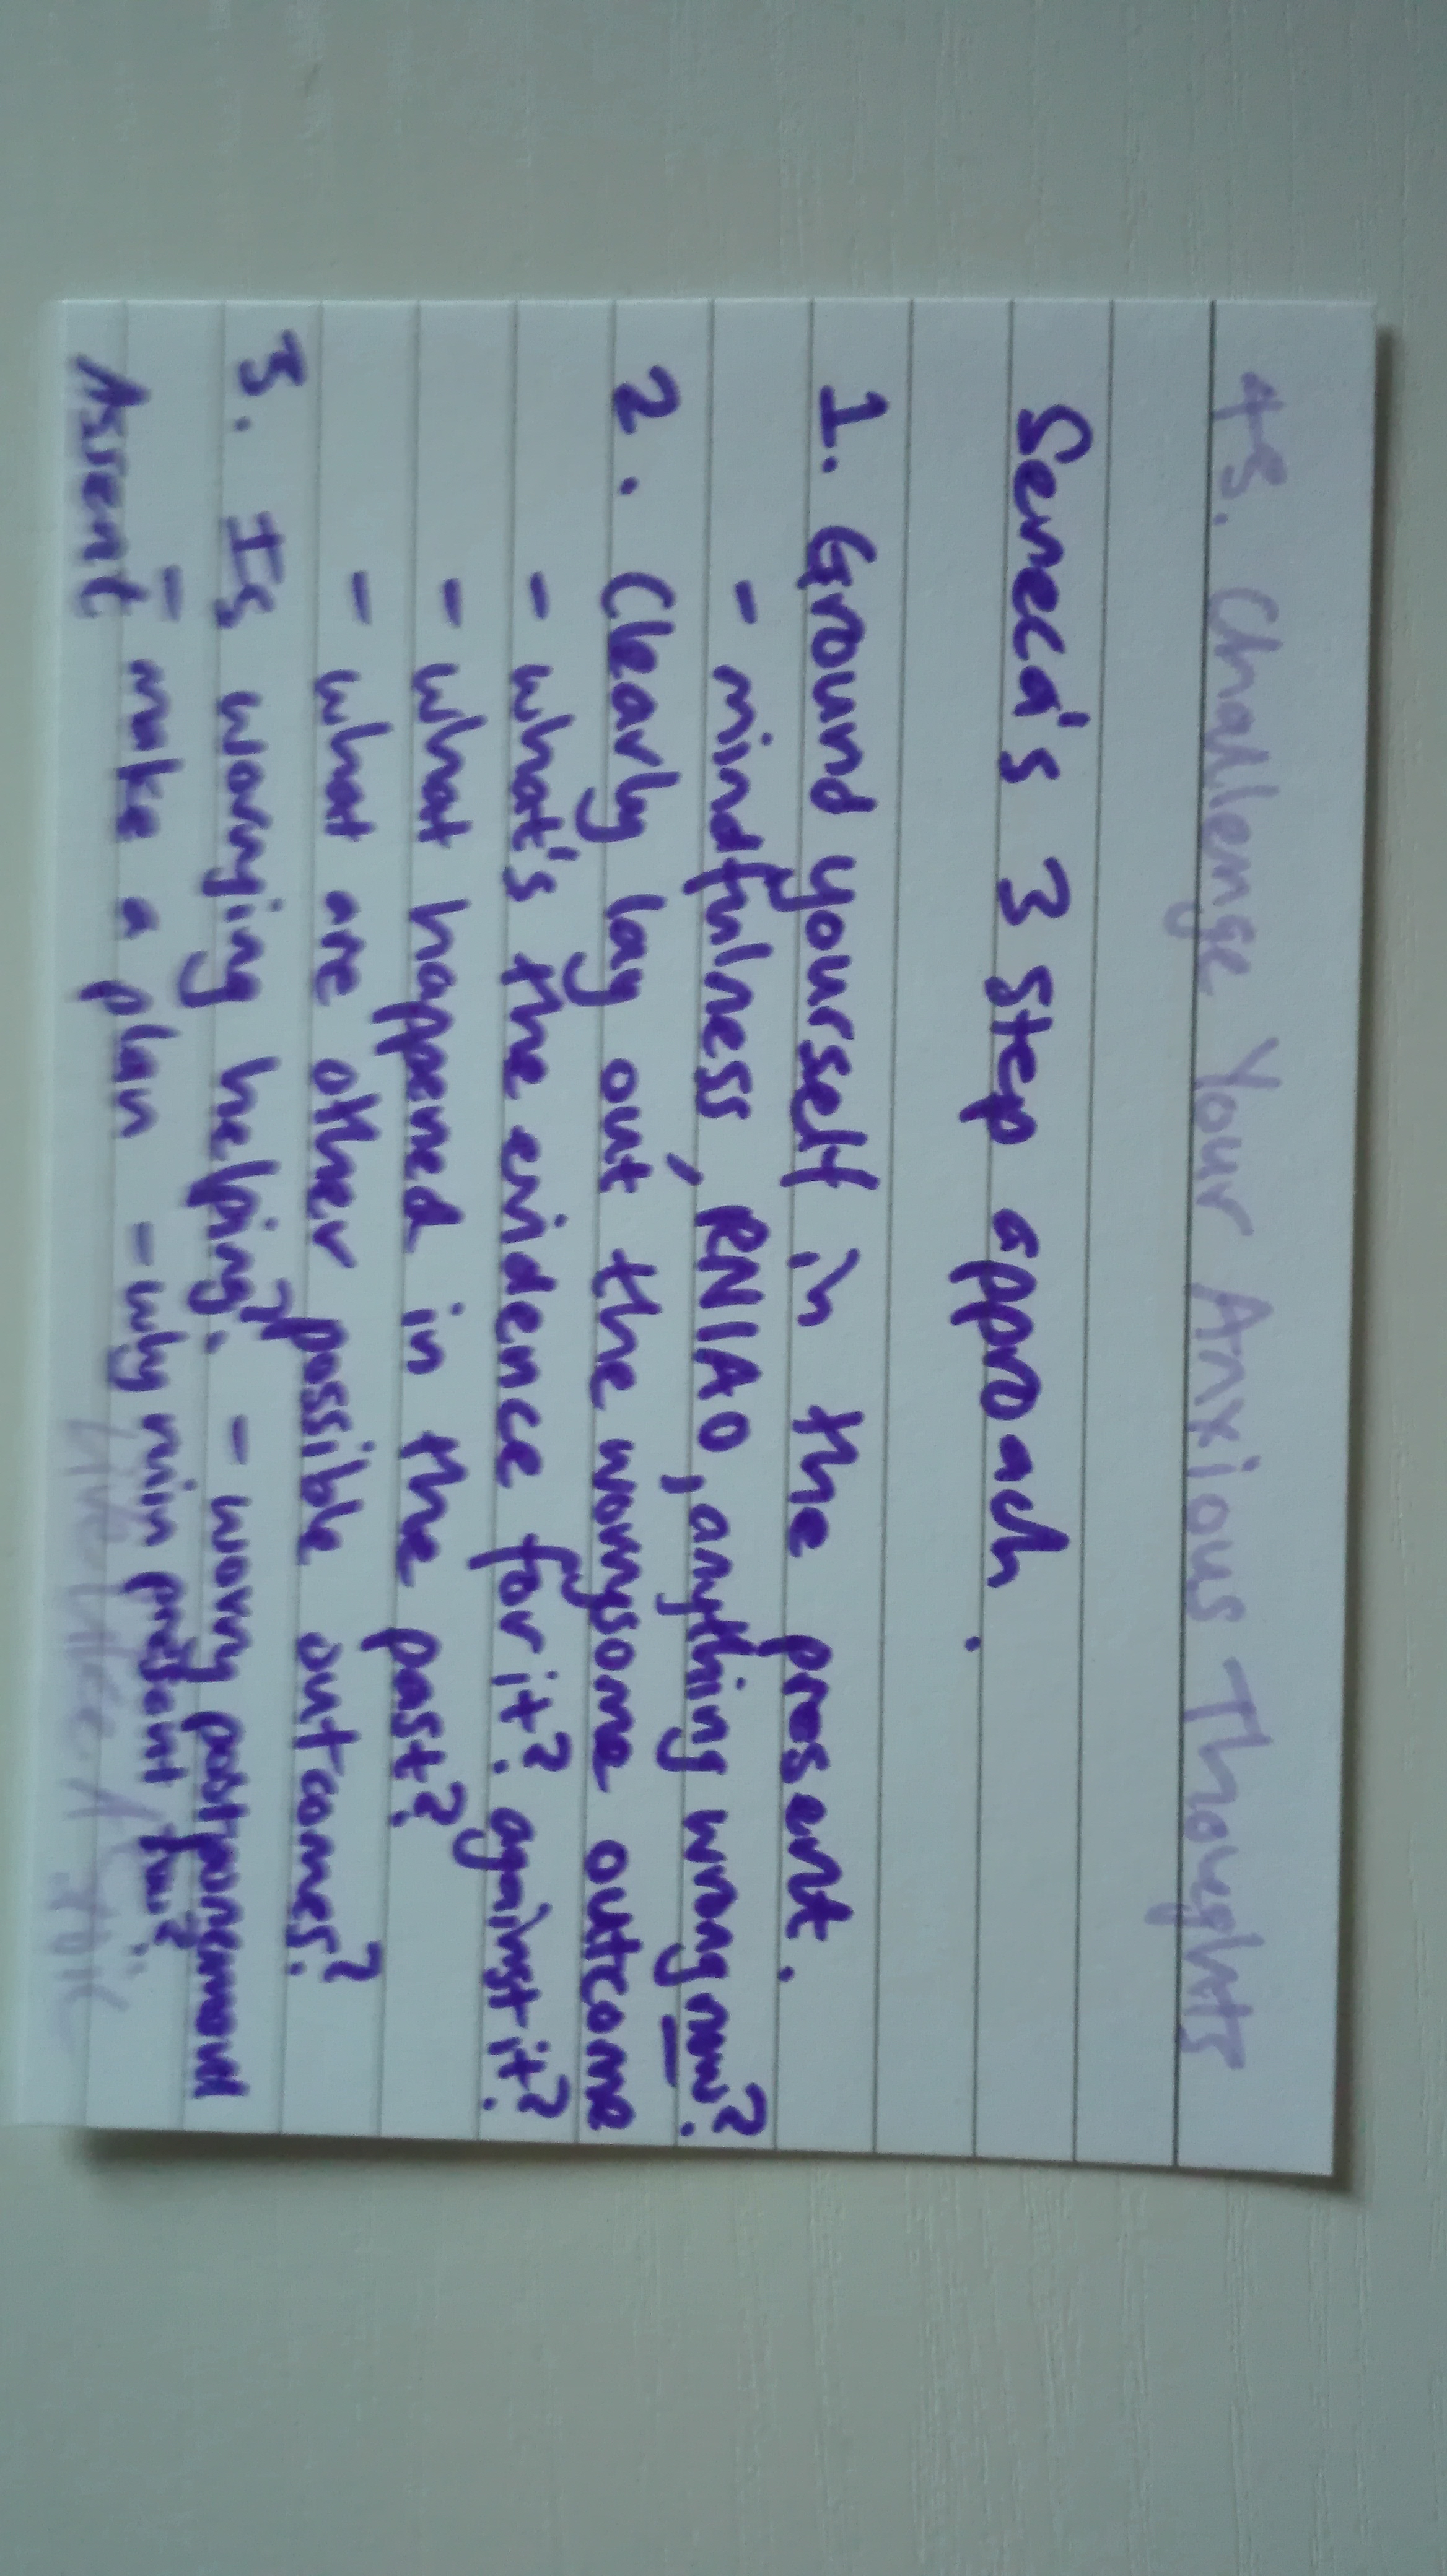 43. Challenge Your Anxious Thoughts
Seneca's 3 step approach.
1. Ground yourself in the present.
- mindfulness, RNIAO, anything wrong now?
2. Clearly lay out the worrysome outcome
- what's the evidence for it? against it?
- what happened in the past?
- what are other possible outcomes?
3. Is worrying helping? - worry postponement
- make a plan - why ruin present for
Assent